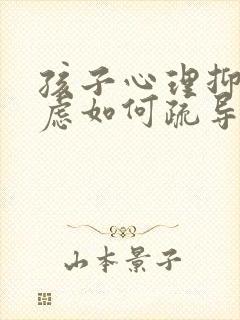 孩子心理抑
虑如何疏导
山本景子